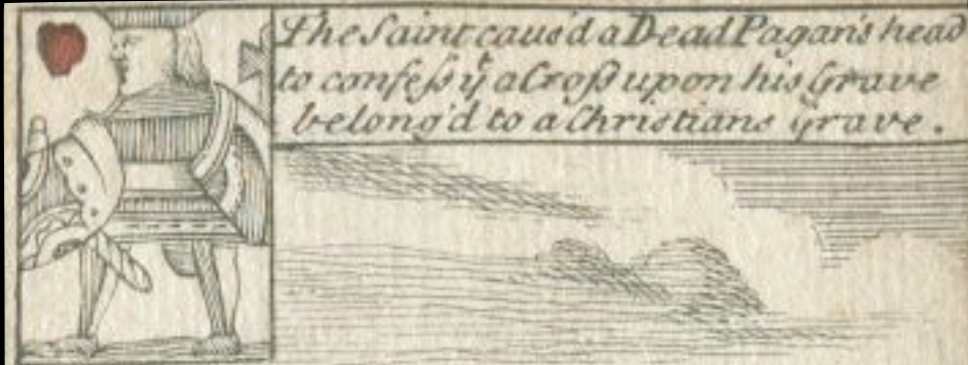 The Saint caus'd a Dead Pagan's head
to confeſs yͭ a Croſs upon his Grave
belong'd to a Christians Grave.